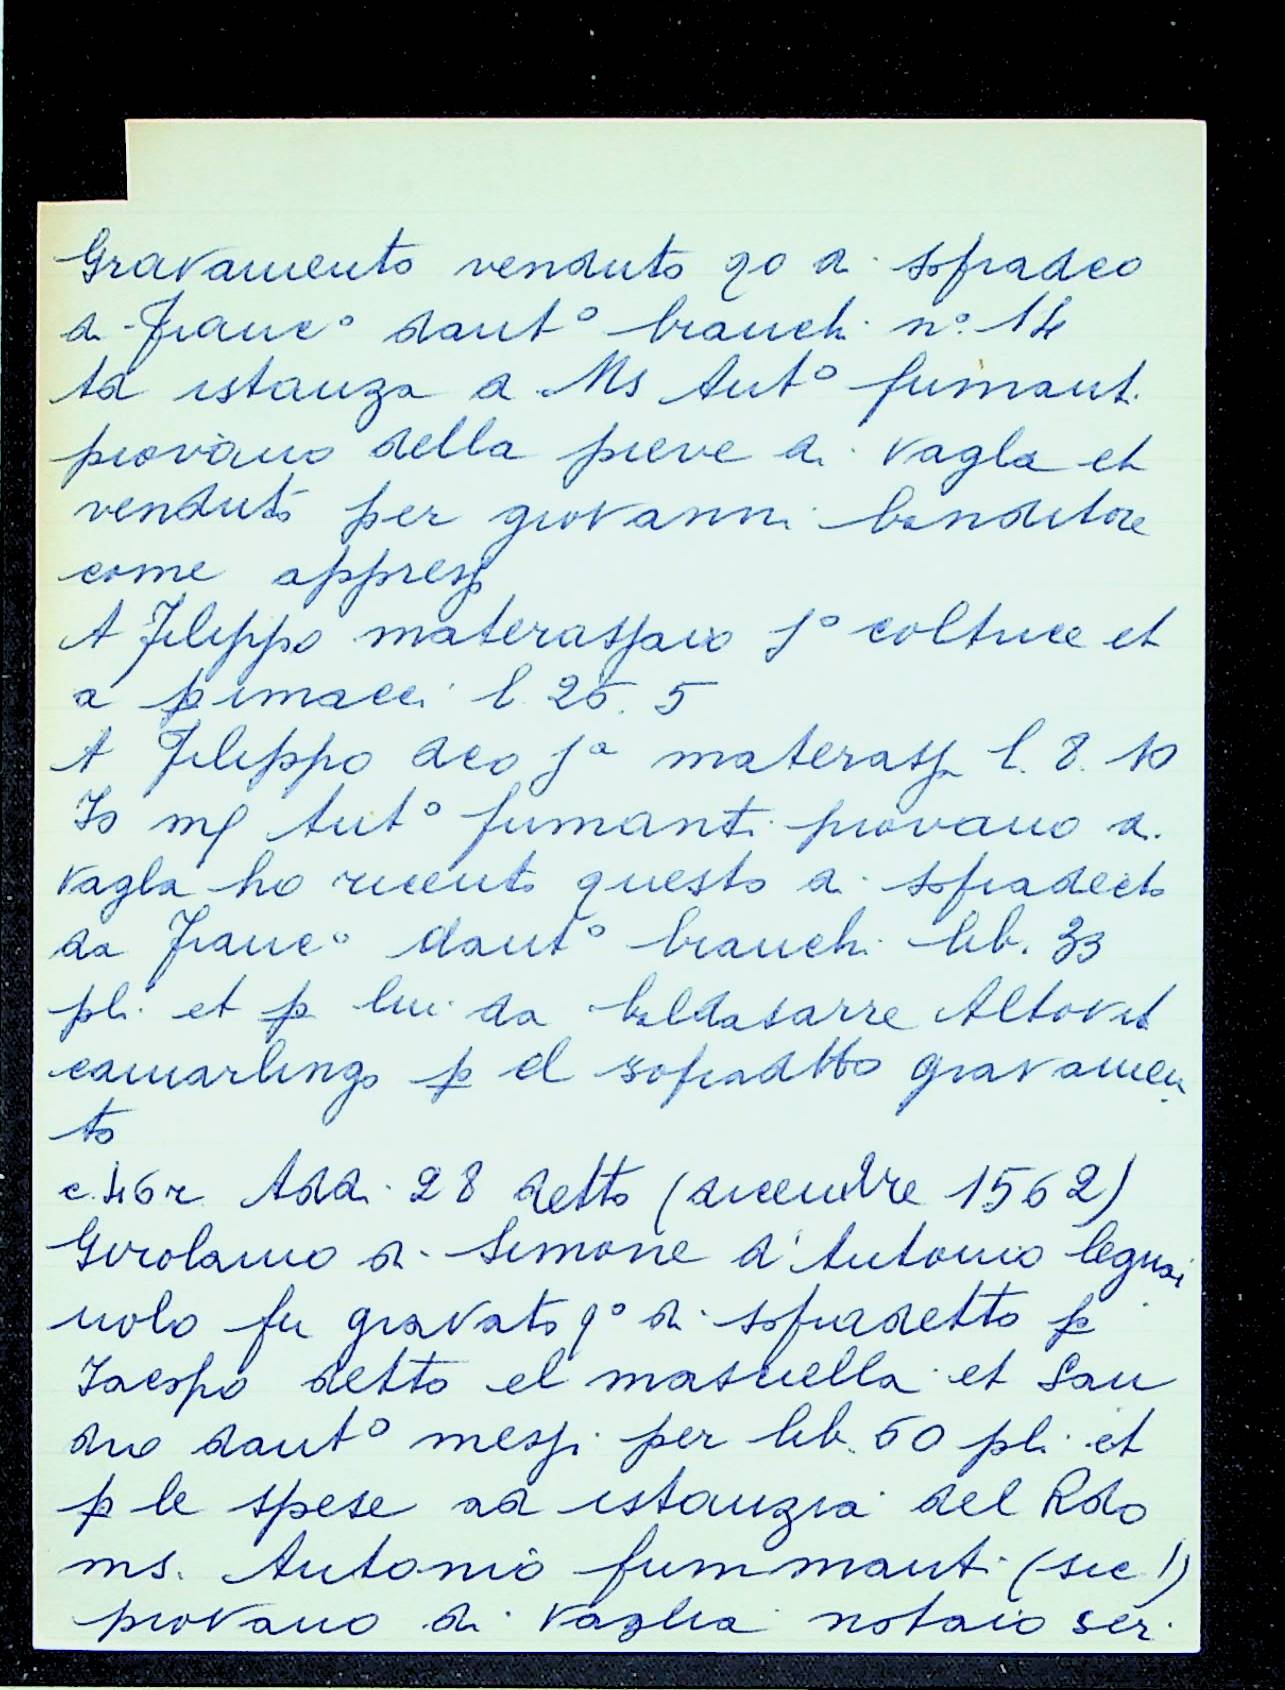 Gravamento venduto qo di sopradco
di Franco danto branchi no. 14
ad istanza di Ms Anto fumanti
piovano della pieve di vagla et
venduto per giovanni banditore
come appresso
A Filippo materassaio jo coltrice et
2 pimacci l. 25. 5
A Filippo dco ja materassa l. 8. 10
Io mß Anto fumanti piovano di
vagla ho riceuto questo di sopradecto
da Franco danto branchi lib. 33
pli. et p lui da baldasarre Altovit
camarlingo p el sopradtto gravamen
to
c. 46 r Addi 28 detto (dicembre 1562)
Girolamo di Simone d'Antonio legnai
uolo fu gravato qo di sopradetto p
Iacopo detto el masuella et San
dro danto messi per lib. 50 pli et
p le spese ad istanzia del Rdo
ms. Antonio fummanti (sic!)
piovano di Vaglia notaio ser.